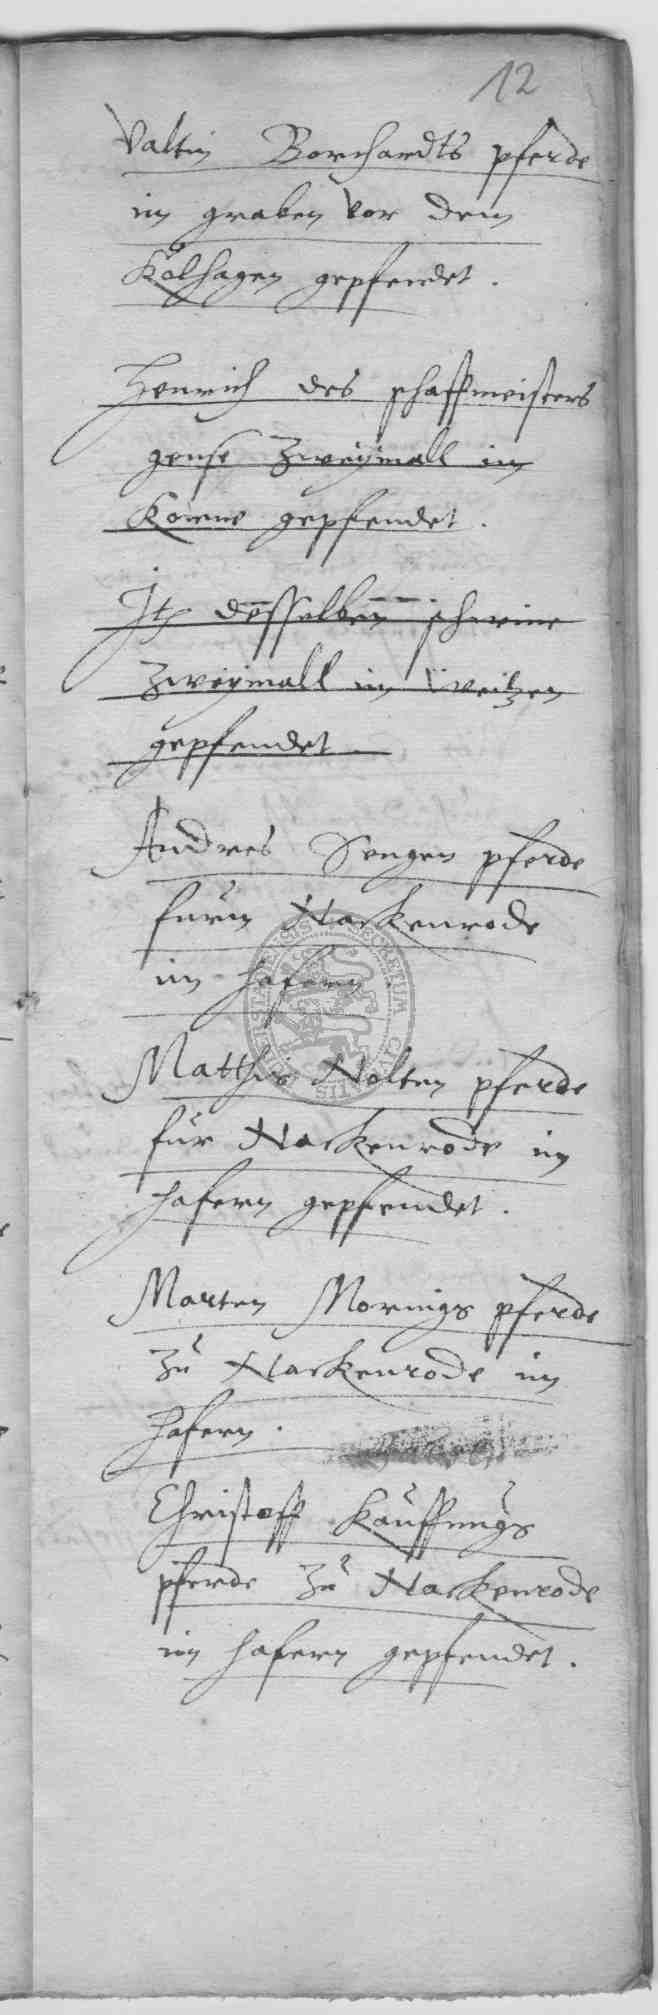 12
Valtin Borchardts pferde
im graben vor dem
Kölhagen gepfendet.
Henrich des schaffmeisters
gense zweymall im
Korne gepfendet.
It desselben schweine
zweymall im weitzen
gepfendet
Andres Sengen pferde
furm Hackenrode
im hafern.
Matthis Nolten pferde
für Hackenrode im
hafern gepfendet.
Marten Mornigs pferde
zu Hackenrode im
hafern.
Christoff Kauffungs
pferde zu Hackenrode
im hafern gepfendet.